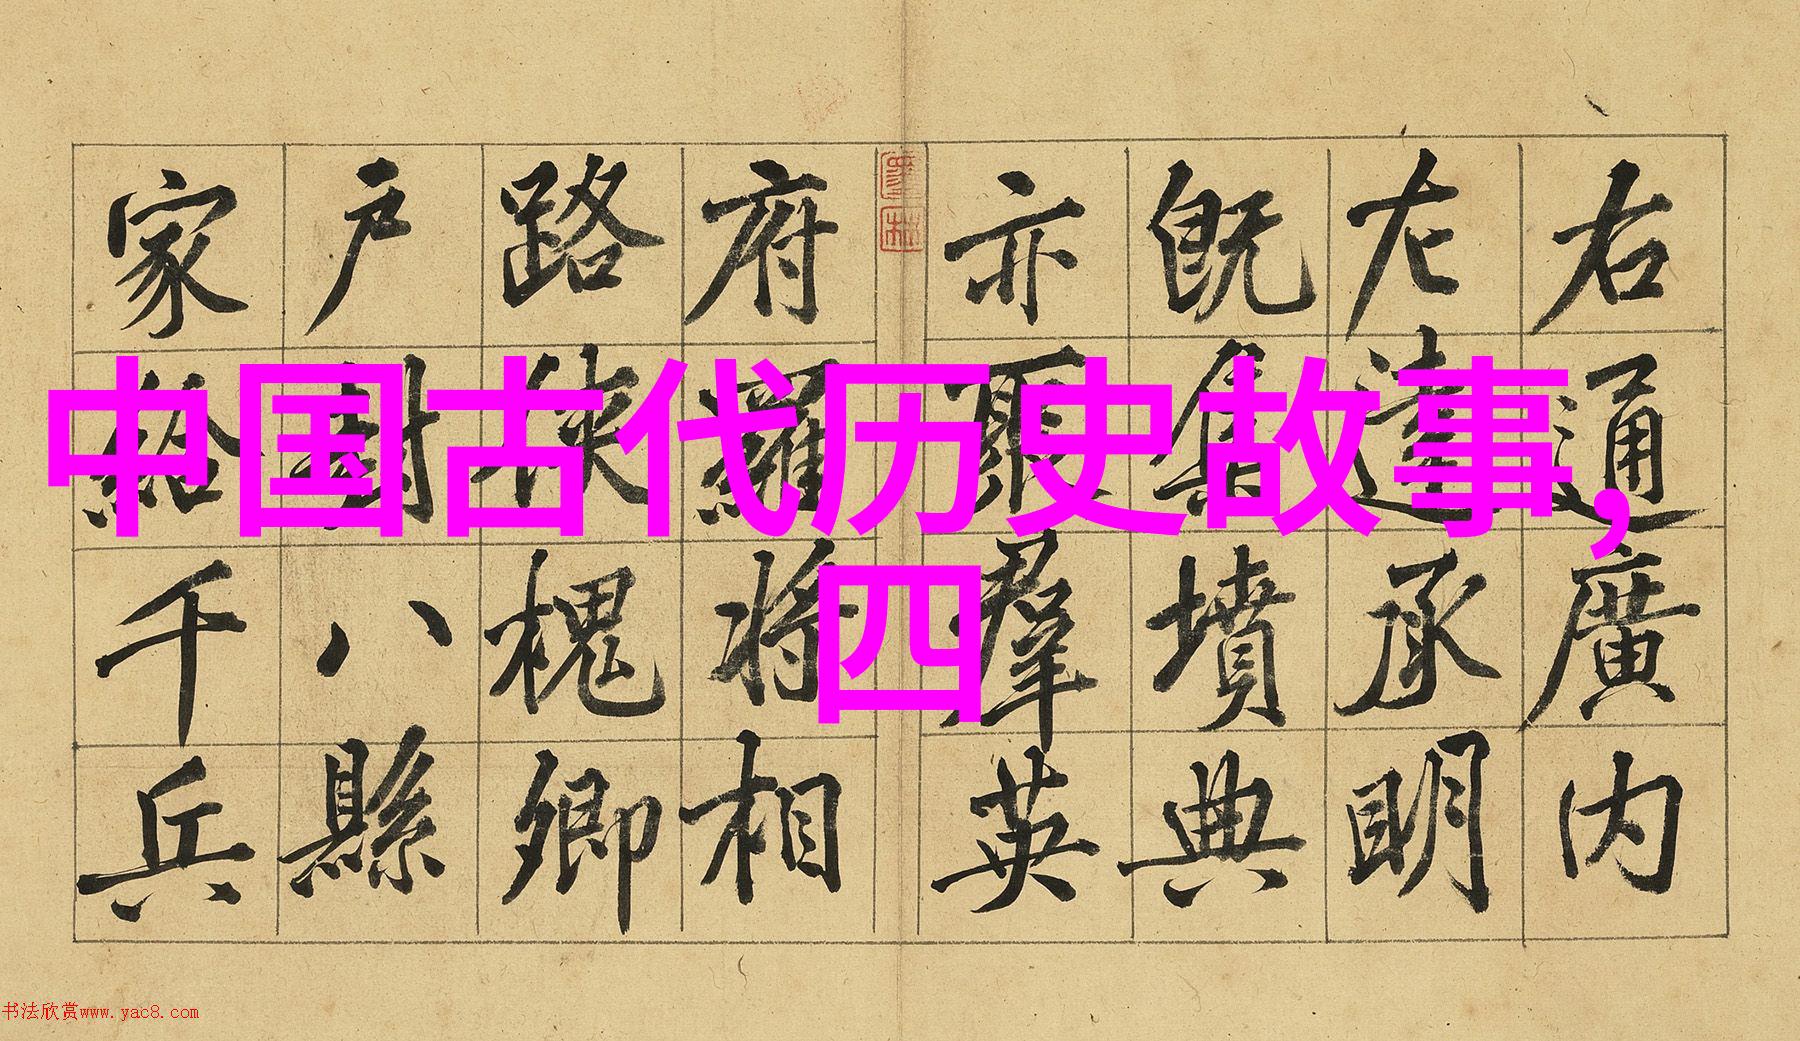 中国古代历史故事,
四
右通廣内
左達承明
既集墳典
亦聚羣英
府羅将相
路俠槐卿
户封八縣
家給千兵
书法欣赏www.yac8.com